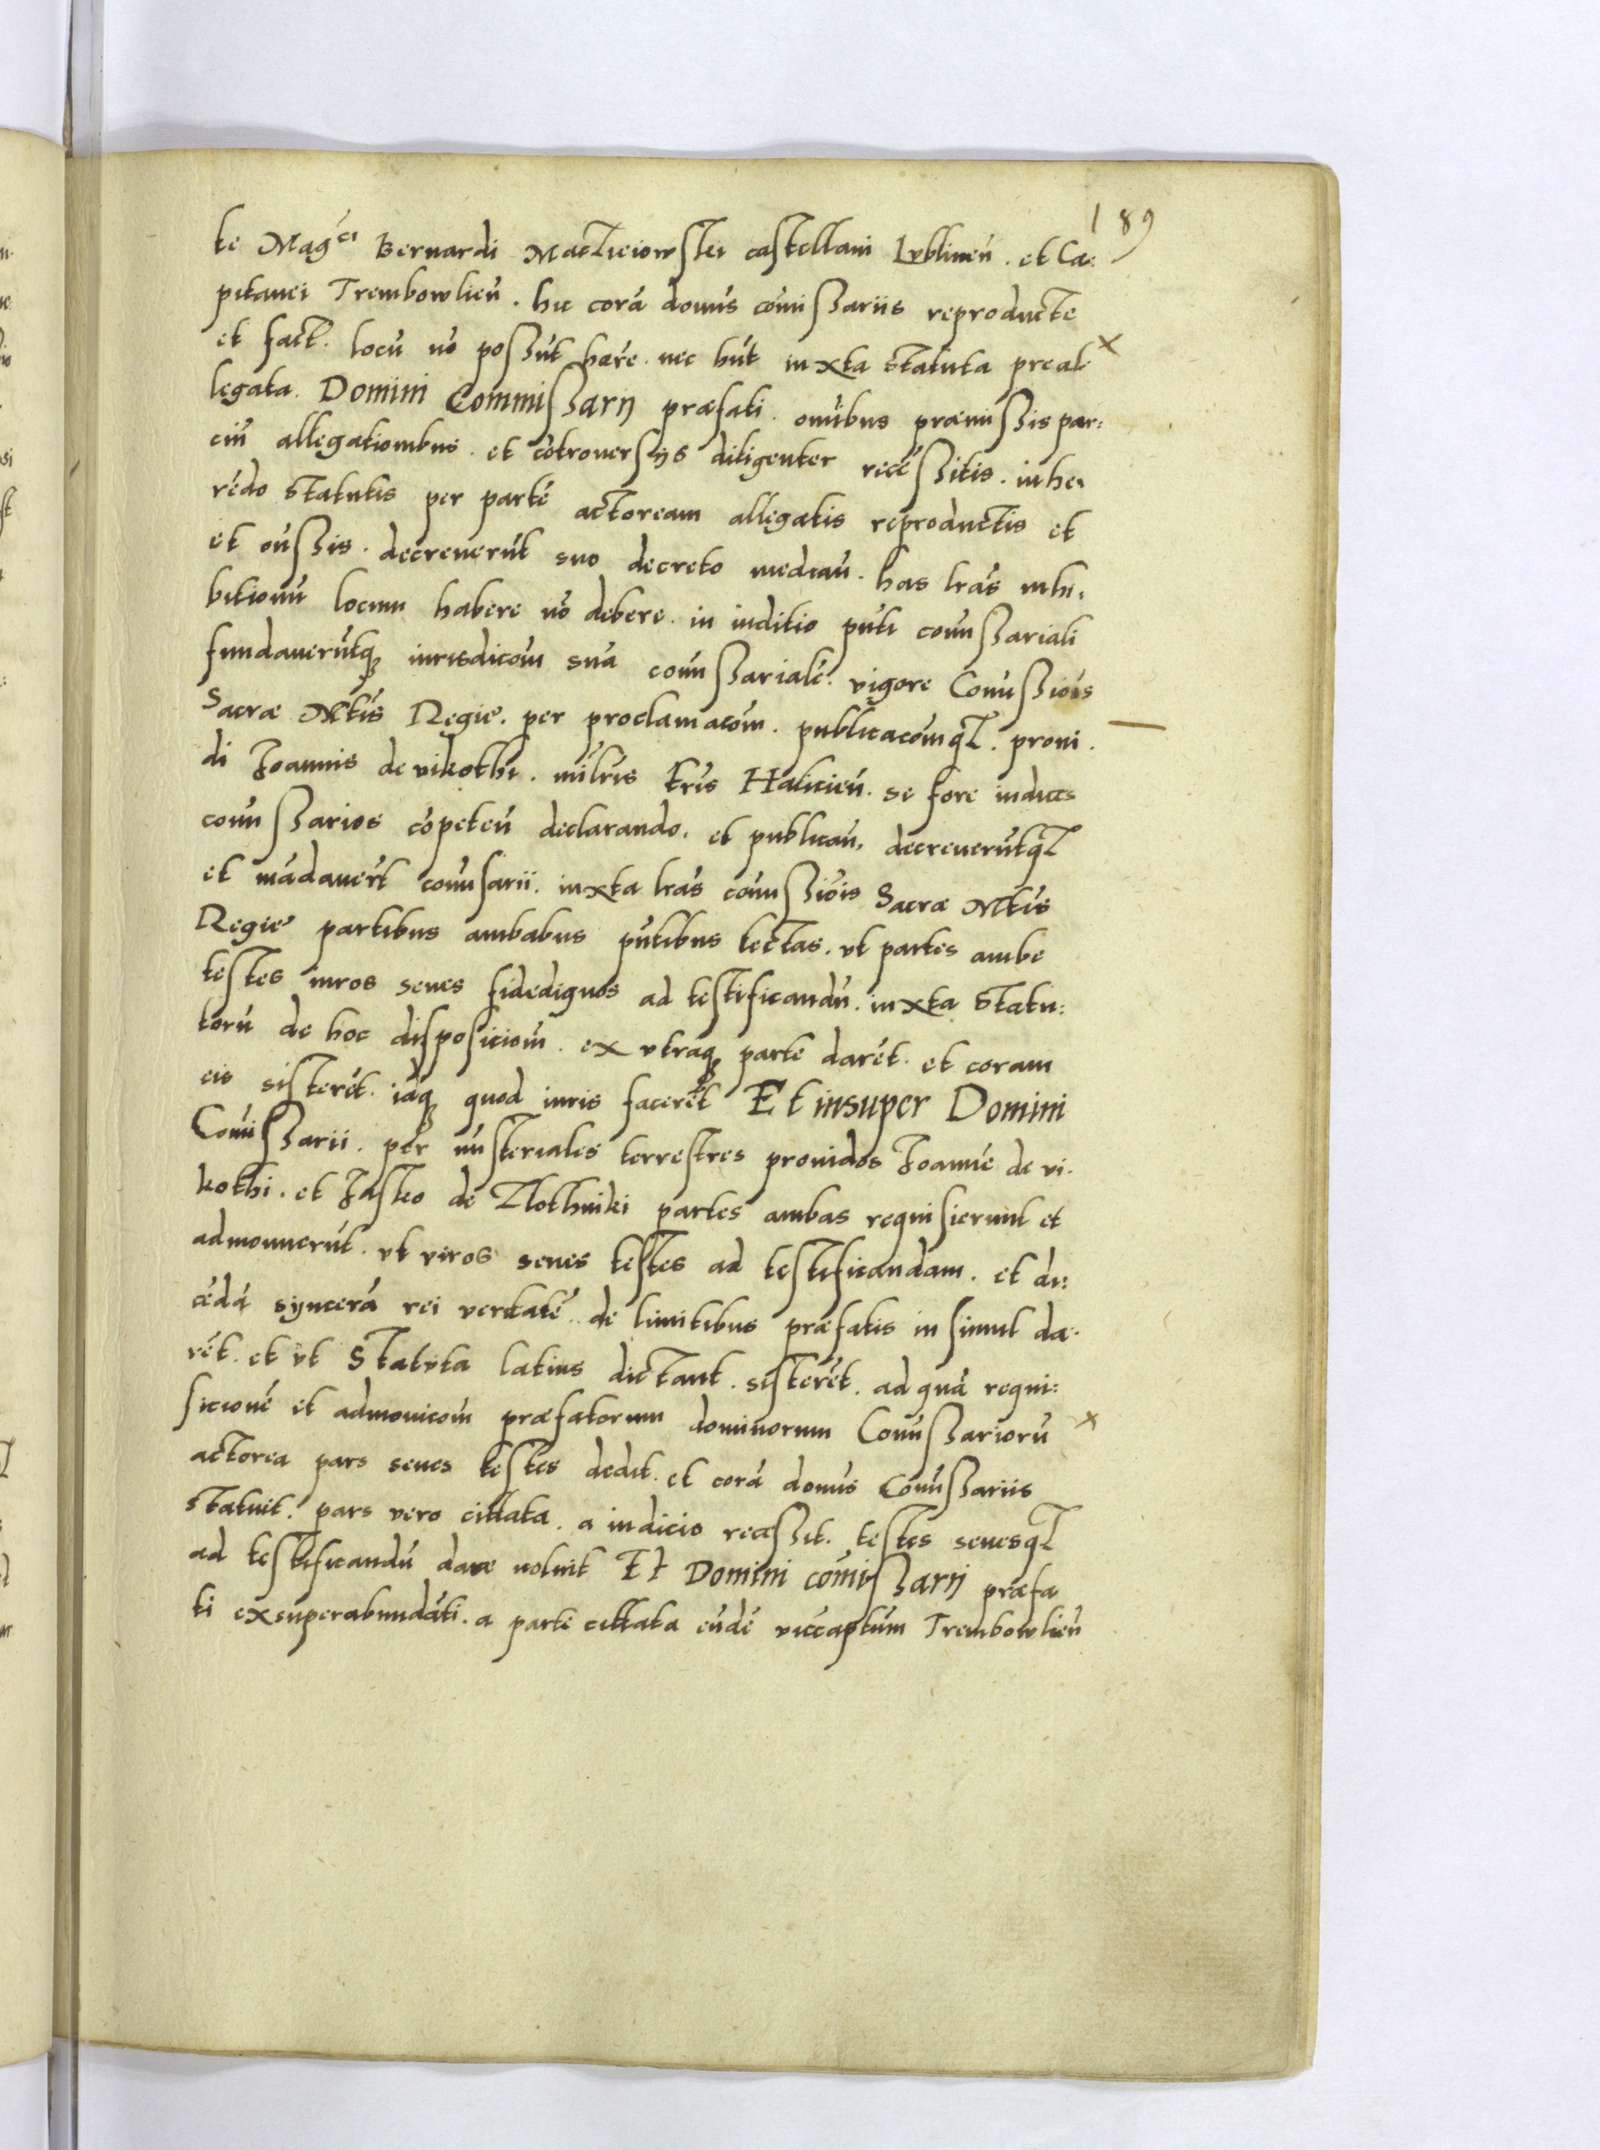 189
te Mag̃ci Bernardi Maczieiowskj castellani Lvblineñ. et Ca:
pitanei Trembowlieñ. hic corã domis comissariis reproducte
et fact. locũ nõ possũt hãre. nec hñt iuxta statuta preal
legata. Domini Commissarij præfati. omibus præmissis par:
ciũ allegationibus. et cõtroversijs diligenter recẽsitis. inhe:
rẽdo statutis per partẽ actoream allegatis reproductis et
et oñssis. decreverũt suo decreto mediañ. has lr̃as inhi:
bitionũ locum habere nõ debere. in iuditio pñti comissariali
fundaverũtq; iurisdicõm suã comissarialẽ. vigore Comissiõis
Sacræ Mt̃is Regie. per proclamacõm. publicacõmq₃. provi.
di Joannis de vikothi. milr̃is tr̃is Haliciẽn. se fore iudices
comissarios cõpeteñ declarando. et publicañ. decreverũtq₃
et mãdavert comisarii. iuxta lr̃as comissiõis Sacræ Mt̃is
Regie partibus ambabus pñtibus lectas. vt partes ambe
testes viros senes fidedignos ad testificandũ. iuxta statu:
torũ de hoc disposiciõm. ex vtraq; parte darẽt. et coram
eis sisterẽt. idq; quod iuris facerẽt Et insuper Domini
Comissarii. per misteriales terrestres providos Joannẽ de vi.
kothi. et Jasko de Zlothniki partes ambas requisierunt et
admonuerũt. vt viros senes testes ad testificandam. et di:
cẽdã syncerã rei veritatẽ. de limitibus præfatis in simul da.
rẽt. et vt Statvta latius dictant. sisterẽt. ad quã requi:
sicionẽ et admonicõm præfatorum dominorum Comissariorũ
actorea pars senes testes dedit. et corã domis Comissariis
statuit. pars vero cittata. a iudicio recessit. testes senesq₃
ad testificandũ dare noluit Et Domini comissarij præfa
ti exsuperabundãti. a parte cittata eũdẽ vicecaptũm Trembowlieñ